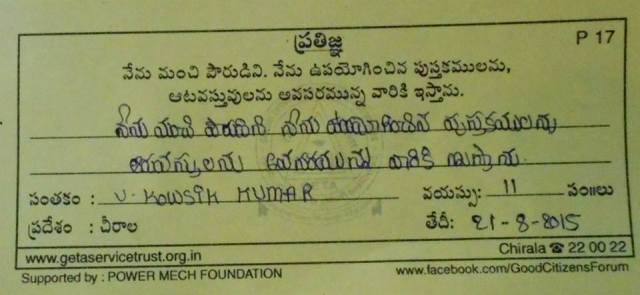 ప్రతిజ్ఞ
P 17
నేను మంచి పౌరుడిని. నేను ఉపయోగించిన పుస్తకములను,
ఆటవస్తువులను అవసరమున్న వారికి ఇస్తాను.
నేను మంచి పౌరుడిని నేను ఉపయోగించిన పుస్తకములను
ఆటవస్తువులను అవసరమున్న వారికి ఇస్తాను.
సంతకం : V. KOWSIK KUMAR వయస్సు: 11 సం॥లు
ప్రదేశం : చీరాల తేదీ: 21-8-2015
www.getaservicetrust.org.in Chirala ☎ 22 00 22
Supported by : POWER MECH FOUNDATION www.facebook.com/GoodCitizensForum